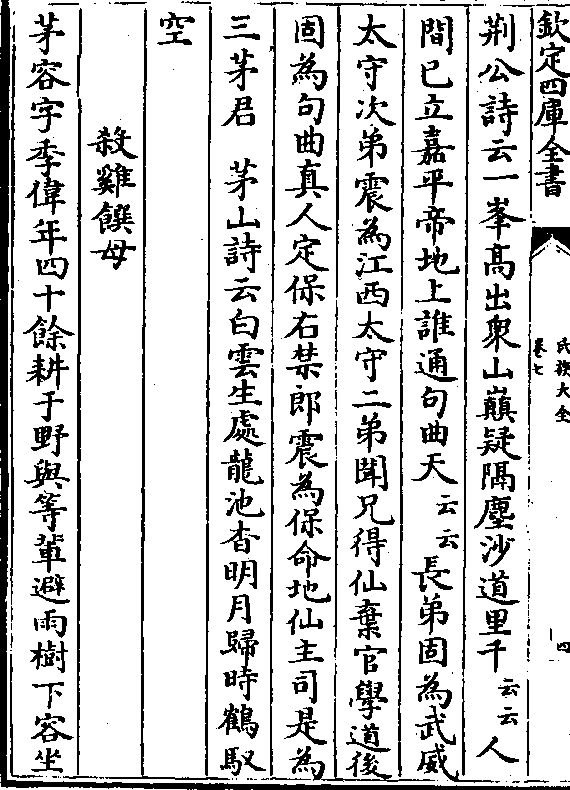 欽定四庫全書
氏族大全
卷七
四
荆公詩云一峯髙出衆山巔疑隔塵沙道里千云云人
間已立嘉平帝地上誰通句曲天云云長弟固為武威
太守次弟震為江西太守二弟聞兄得仙棄官學道後
固為句曲真人定保右禁郎震為保命地仙主司是為
三茅君　茅山詩云白雲生處龍池杳明月歸時鶴馭
空
殺雞饌母
茅容字季偉年四十餘耕于野與等軰避雨樹下容坐